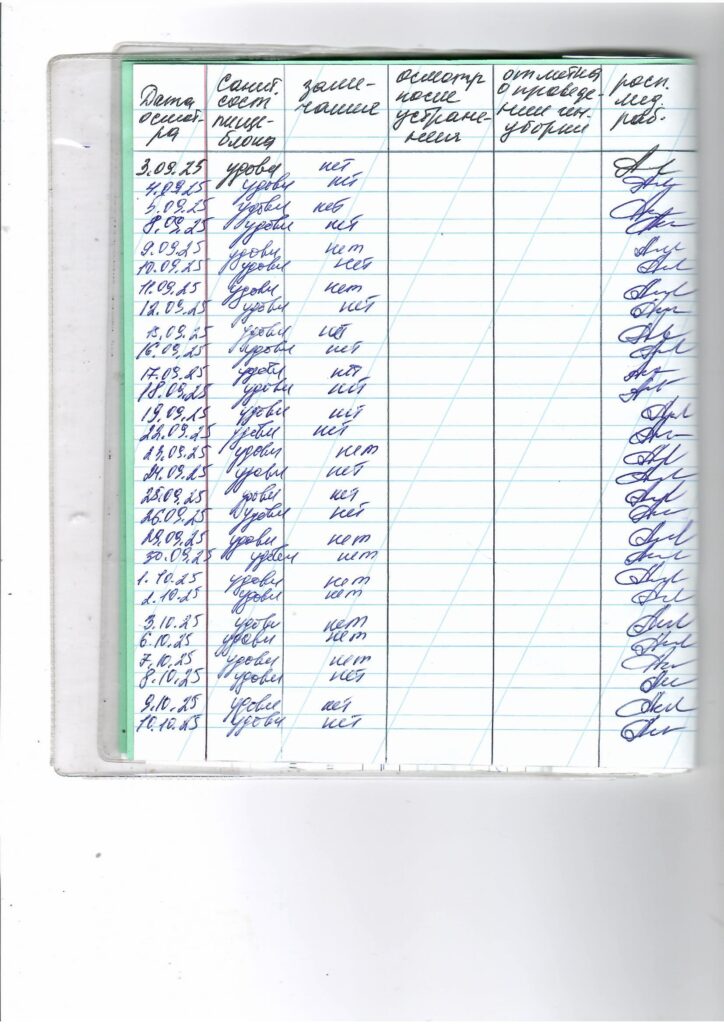 Дата осмот-ра | Санит. сост. пище-блока | заме-чание | осмотр после устране-ния | отметка о проведе-нии ген. уборки | росп. мед. раб.
3.09.25 удовл нет
4.09.25 удовл нет
5.09.25 удовл нет
8.09.25 удовл нет
9.09.25 удовл нет
10.09.25 удовл нет
11.09.25 удовл нет
12.09.25 удовл нет
15.09.25 удовл нет
16.09.25 удовл нет
17.09.25 удовл нет
18.09.25 удовл нет
19.09.25 удовл нет
22.09.25 удовл нет
23.09.25 удовл нет
24.09.25 удовл нет
25.09.25 удовл нет
26.09.25 удовл нет
29.09.25 удовл нет
30.09.25 удовл нет
1.10.25 удовл нет
2.10.25 удовл нет
3.10.25 удовл нет
6.10.25 удовл нет
7.10.25 удовл нет
8.10.25 удовл нет
9.10.25 удовл нет
10.10.25 удовл нет